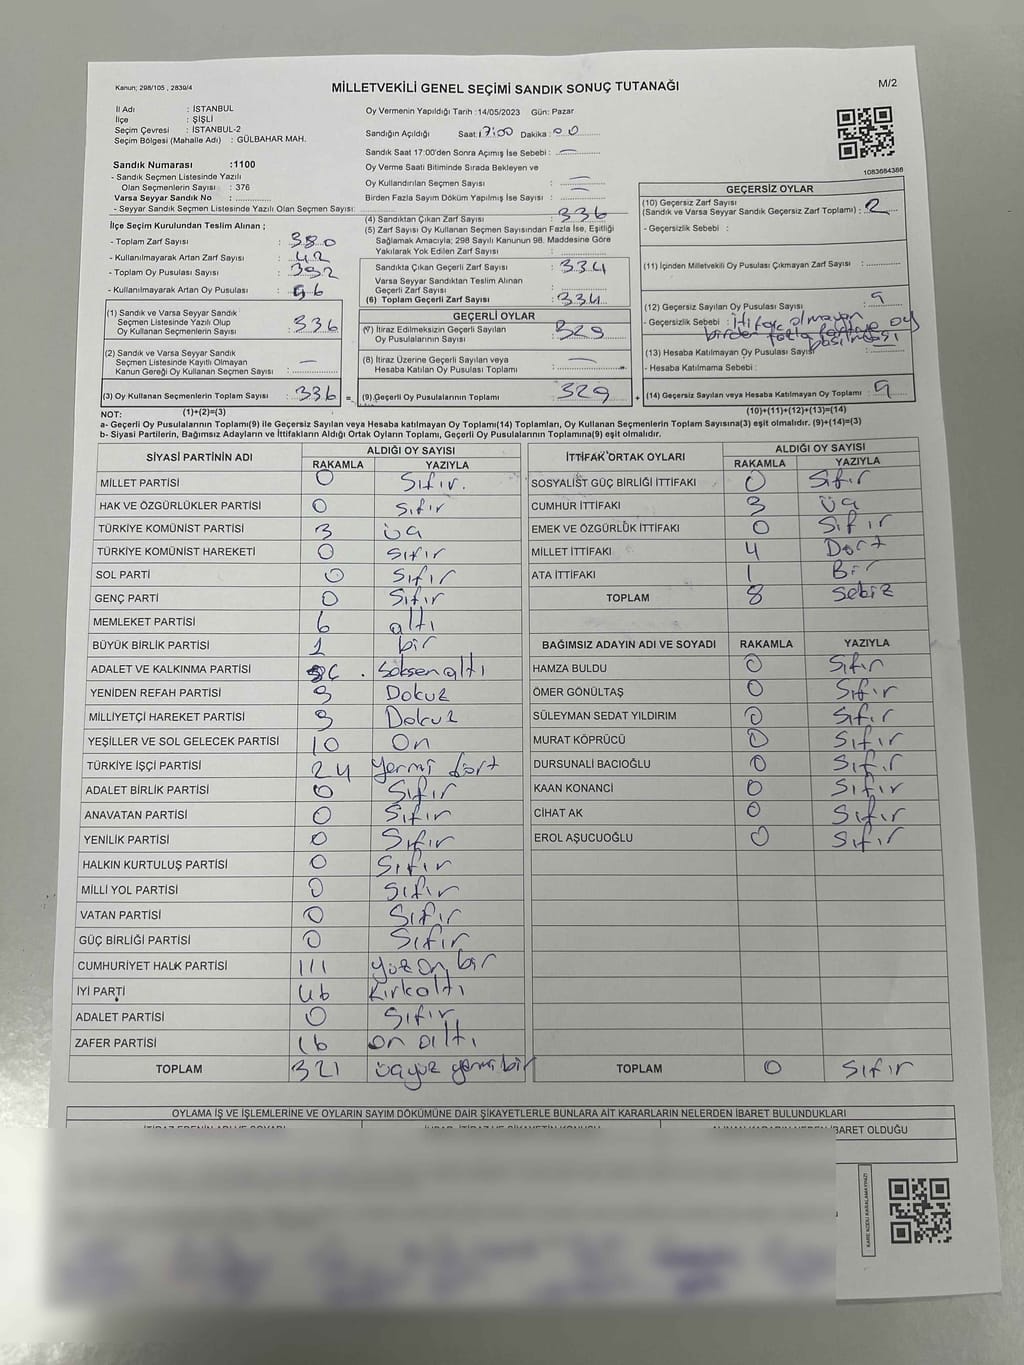 Kanun; 298/105 , 2839/4
MİLLETVEKİLİ GENEL SEÇİMİ SANDIK SONUÇ TUTANAĞI
M/2
İl Adı : İSTANBUL
İlçe : ŞİŞLİ
Seçim Çevresi : İSTANBUL-2
Seçim Bölgesi (Mahalle Adı) : GÜLBAHAR MAH.
Sandık Numarası :1100
- Sandık Seçmen Listesinde Yazılı
Olan Seçmenlerin Sayısı : 376
Varsa Seyyar Sandık No :
- Seyyar Sandık Seçmen Listesinde Yazılı Olan Seçmen Sayısı:
İlçe Seçim Kurulundan Teslim Alınan ;
- Toplam Zarf Sayısı : 380
- Kullanılmayarak Artan Zarf Sayısı : 42
- Toplam Oy Pusulası Sayısı : 392
- Kullanılmayarak Artan Oy Pusulası : 56
(1) Sandık ve Varsa Seyyar Sandık
Seçmen Listesinde Yazılı Olup
Oy Kullanan Seçmenlerin Sayısı : 336
(2) Sandık ve Varsa Seyyar Sandık
Seçmen Listesinde Kayıtlı Olmayan
Kanun Gereği Oy Kullanan Seçmen Sayısı : —
(3) Oy Kullanan Seçmenlerin Toplam Sayısı : 336 =
Oy Vermenin Yapıldığı Tarih :14/05/2023 Gün: Pazar
Sandığın Açıldığı Saat:17:00 Dakika: 00
Sandık Saat 17:00'den Sonra Açımış İse Sebebi : —
Oy Verme Saati Bitiminde Sırada Bekleyen ve
Oy Kullandırılan Seçmen Sayısı : —
Birden Fazla Sayım Döküm Yapılmış İse Sayısı : —
(4) Sandıktan Çıkan Zarf Sayısı : 336
(5) Zarf Sayısı Oy Kullanan Seçmen Sayısından Fazla İse, Eşitliği
Sağlamak Amacıyla; 298 Sayılı Kanunun 98. Maddesine Göre
Yakılarak Yok Edilen Zarf Sayısı :
Sandıkta Çıkan Geçerli Zarf Sayısı : 334
Varsa Seyyar Sandıktan Teslim Alınan
Geçerli Zarf Sayısı :
(6) Toplam Geçerli Zarf Sayısı : 334
GEÇERLİ OYLAR
(7) İtiraz Edilmeksizin Geçerli Sayılan
Oy Pusulalarının Sayısı : 329
(8) İtiraz Üzerine Geçerli Sayılan veya
Hesaba Katılan Oy Pusulası Toplamı : —
(9) Geçerli Oy Pusulalarının Toplamı : 329 +
1083664386
GEÇERSİZ OYLAR
(10) Geçersiz Zarf Sayısı
(Sandık ve Varsa Seyyar Sandık Geçersiz Zarf Toplamı) : 2
- Geçersizlik Sebebi :
(11) İçinden Milletvekili Oy Pusulası Çıkmayan Zarf Sayısı :
(12) Geçersiz Sayılan Oy Pusulası Sayısı : 9
- Geçersizlik Sebebi : İttifak olmayan
birden fazla partiye oy
basılması
(13) Hesaba Katılmayan Oy Pusulası Sayısı
- Hesaba Katılmama Sebebi :
(14) Geçersiz Sayılan veya Hesaba Katılmayan Oy Toplamı : 9
NOT: (1)+(2)=(3) (10)+(11)+(12)+(13)=(14)
a- Geçerli Oy Pusulalarının Toplamı(9) ile Geçersiz Sayılan veya Hesaba katılmayan Oy Toplamı(14) Toplamları, Oy Kullanan Seçmenlerin Toplam Sayısına(3) eşit olmalıdır. (9)+(14)=(3)
b- Siyasi Partilerin, Bağımsız Adayların ve İttifakların Aldığı Ortak Oyların Toplamı, Geçerli Oy Pusulalarının Toplamına(9) eşit olmalıdır.
SİYASİ PARTİNİN ADI ALDIĞI OY SAYISI
RAKAMLA YAZIYLA
MİLLET PARTİSİ 0 Sıfır.
HAK VE ÖZGÜRLÜKLER PARTİSİ 0 Sıfır
TÜRKİYE KOMÜNİST PARTİSİ 3 üç
TÜRKİYE KOMÜNİST HAREKETİ 0 Sıfır
SOL PARTİ 0 Sıfır
GENÇ PARTİ 0 Sıfır
MEMLEKET PARTİSİ 6 altı
BÜYÜK BİRLİK PARTİSİ 1 bir
ADALET VE KALKINMA PARTİSİ 86 . Seksen altı
YENİDEN REFAH PARTİSİ 9 Dokuz
MİLLİYETÇİ HAREKET PARTİSİ 9 Dokuz
YEŞİLLER VE SOL GELECEK PARTİSİ 10 On
TÜRKİYE İŞÇİ PARTİSİ 24 yermi dört
ADALET BİRLİK PARTİSİ 0 Sıfır
ANAVATAN PARTİSİ 0 Sıfır
YENİLİK PARTİSİ 0 Sıfır
HALKIN KURTULUŞ PARTİSİ 0 Sıfır
MİLLİ YOL PARTİSİ 0 Sıfır
VATAN PARTİSİ 0 Sıfır
GÜÇ BİRLİĞİ PARTİSİ 0 Sıfır
CUMHURİYET HALK PARTİSİ 111 yüz on bir
İYİ PARTİ 46 Kırkaltı
ADALET PARTİSİ 0 Sıfır
ZAFER PARTİSİ 16 on altı
TOPLAM 321 üçyüz yermi bir
İTTİFAK ORTAK OYLARI ALDIĞI OY SAYISI
RAKAMLA YAZIYLA
SOSYALİST GÜÇ BİRLİĞİ İTTİFAKI 0 Sıfır
CUMHUR İTTİFAKI 3 üç
EMEK VE ÖZGÜRLÜK İTTİFAKI 0 Sıfır
MİLLET İTTİFAKI 4 Dört
ATA İTTİFAKI 1 Bir
TOPLAM 8 Sekiz
BAĞIMSIZ ADAYIN ADI VE SOYADI RAKAMLA YAZIYLA
HAMZA BULDU 0 Sıfır
ÖMER GÖNÜLTAŞ 0 Sıfır
SÜLEYMAN SEDAT YILDIRIM 0 Sıfır
MURAT KÖPRÜCÜ 0 Sıfır
DURSUNALİ BACIOĞLU 0 Sıfır
KAAN KONANCİ 0 Sıfır
CİHAT AK 0 Sıfır
EROL AŞUCUOĞLU 0 Sıfır
TOPLAM 0 Sıfır
OYLAMA İŞ VE İŞLEMLERİNE VE OYLARIN SAYIM DÖKÜMÜNE DAİR ŞİKAYETLERLE BUNLARA AİT KARARLARIN NELERDEN İBARET BULUNDUKLARI
İBARET OLDUĞU
KARE KODU KARALAMAYINIZ!